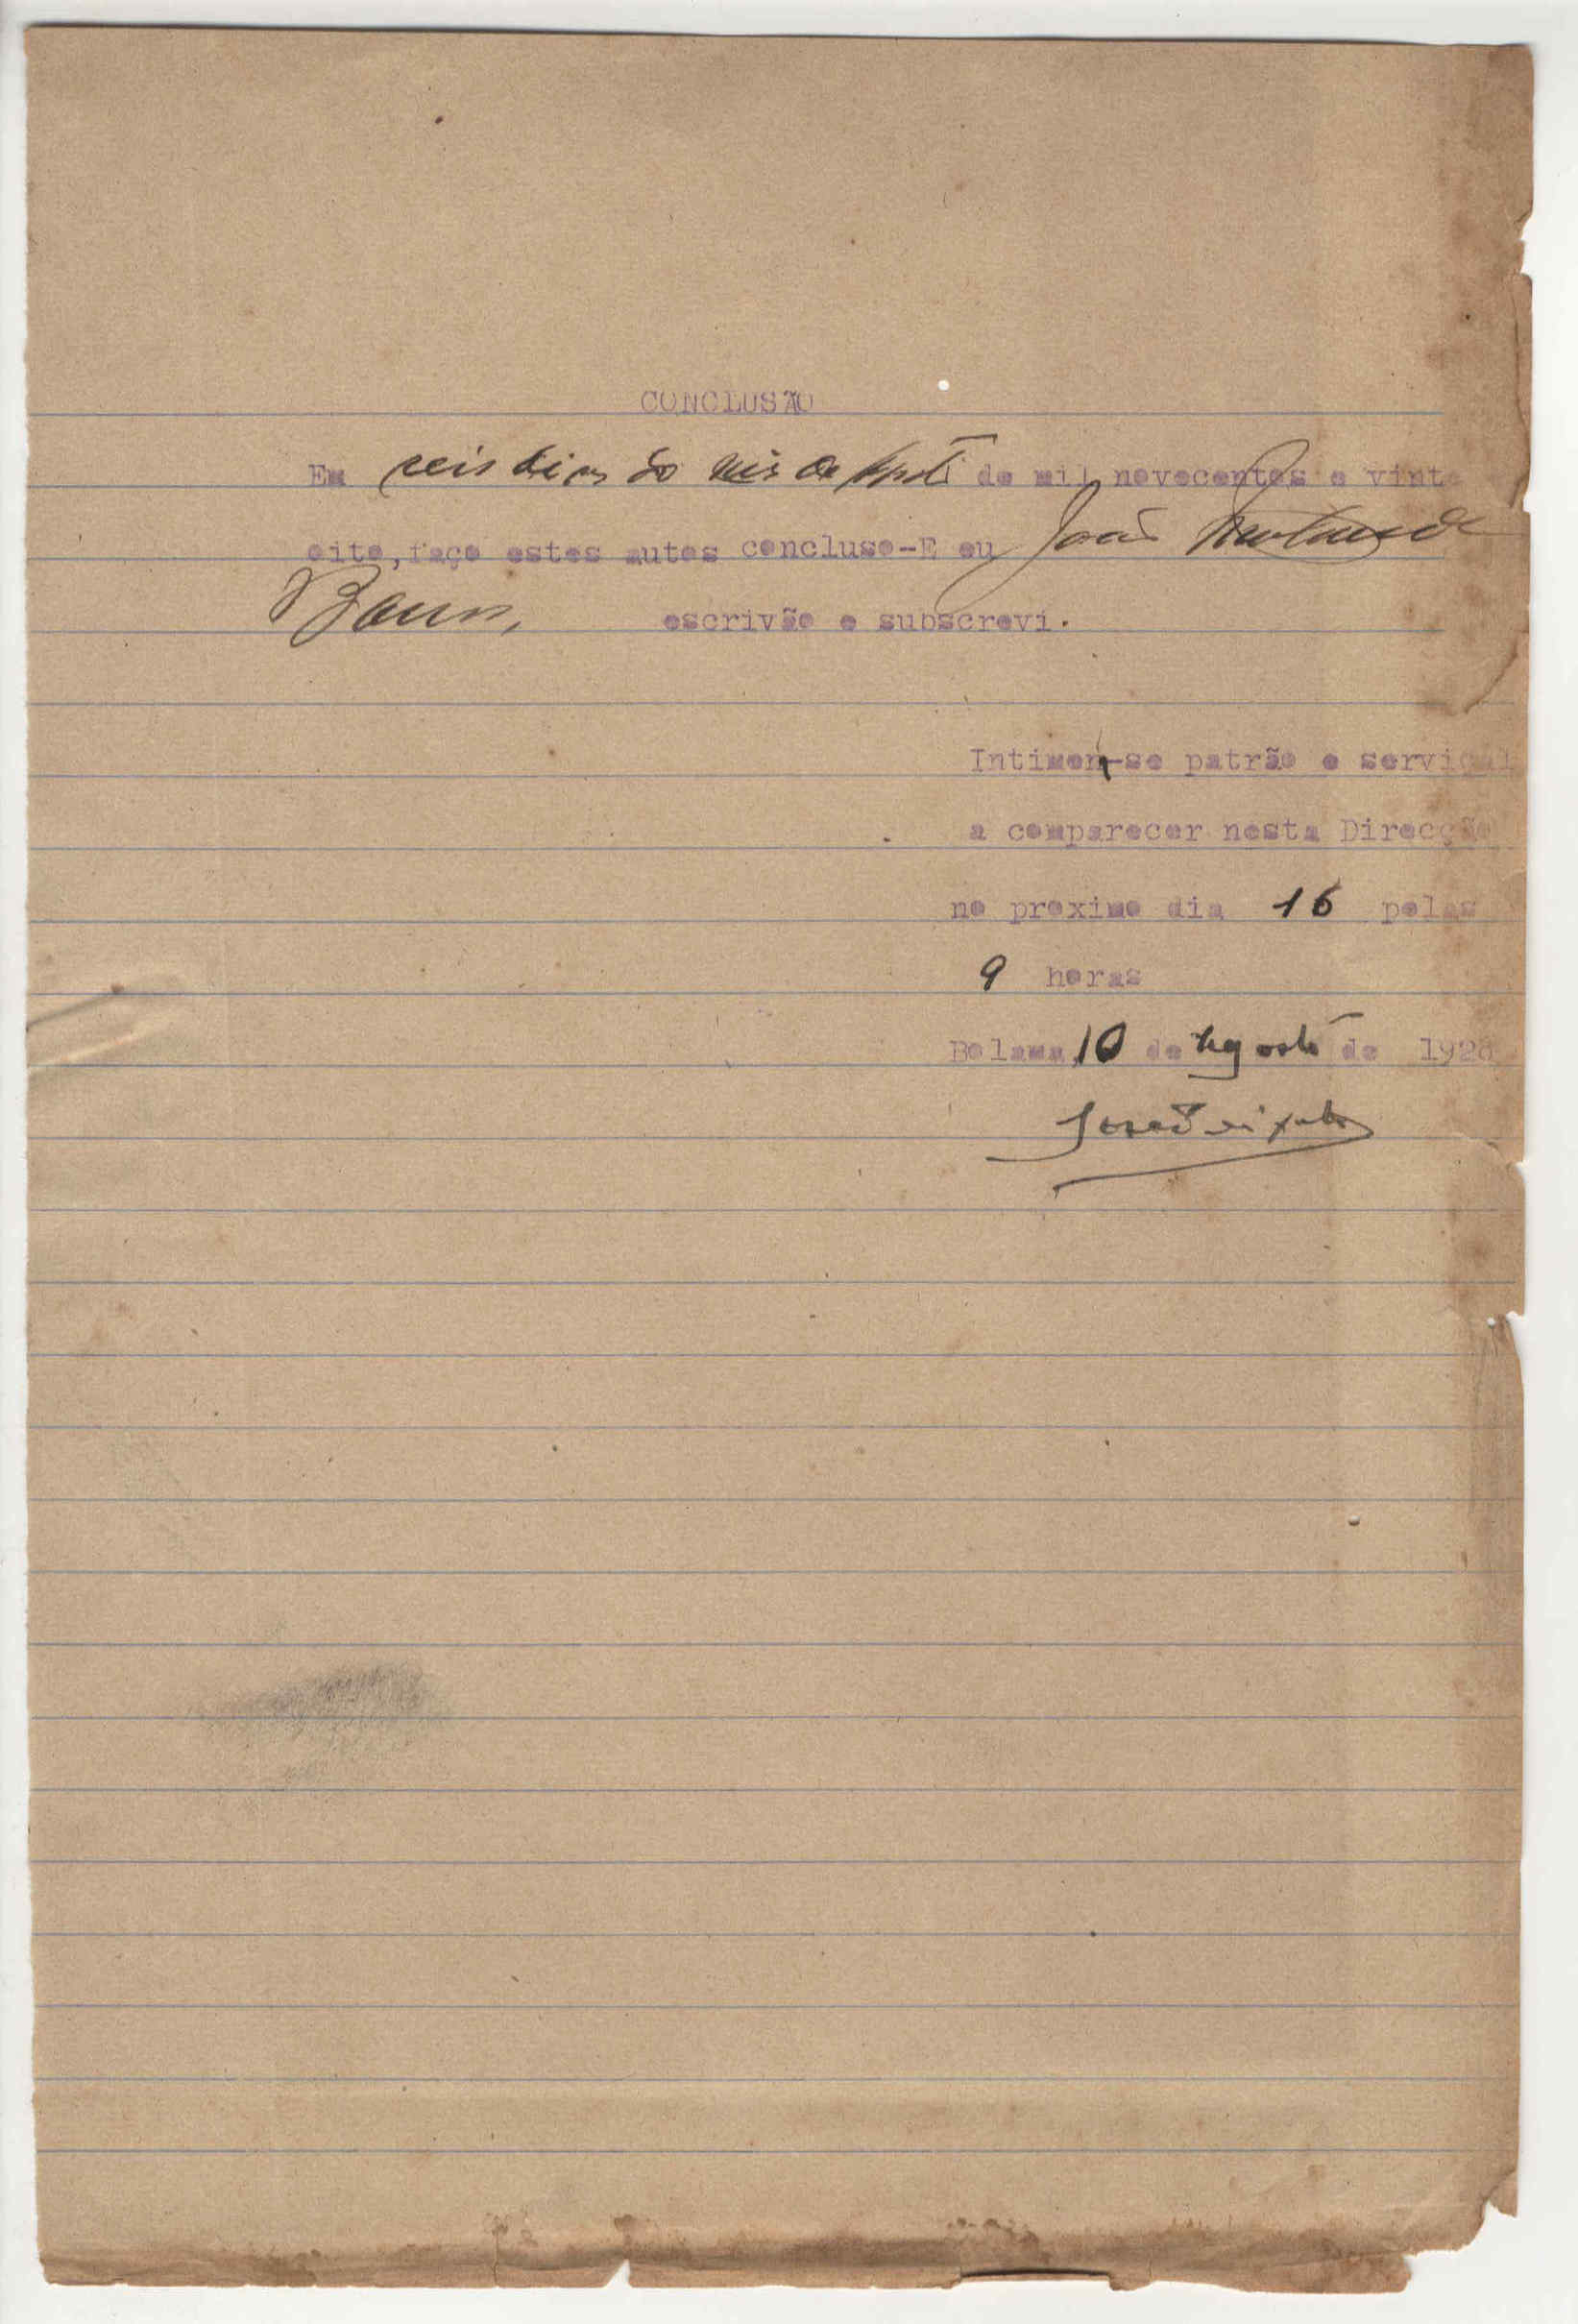 CONCLUSÃO
Em seis dias do mês de Agosto de mil novecentos e vinte e
oito, faço estes autos concluso-E eu João
Barros, escrivão e subscrevi.
Intimem-se patrão e serviçal
a comparecer nesta Direcção
no proximo dia 16 pelas
9 horas
Bolama, 10 de Agosto de 1928